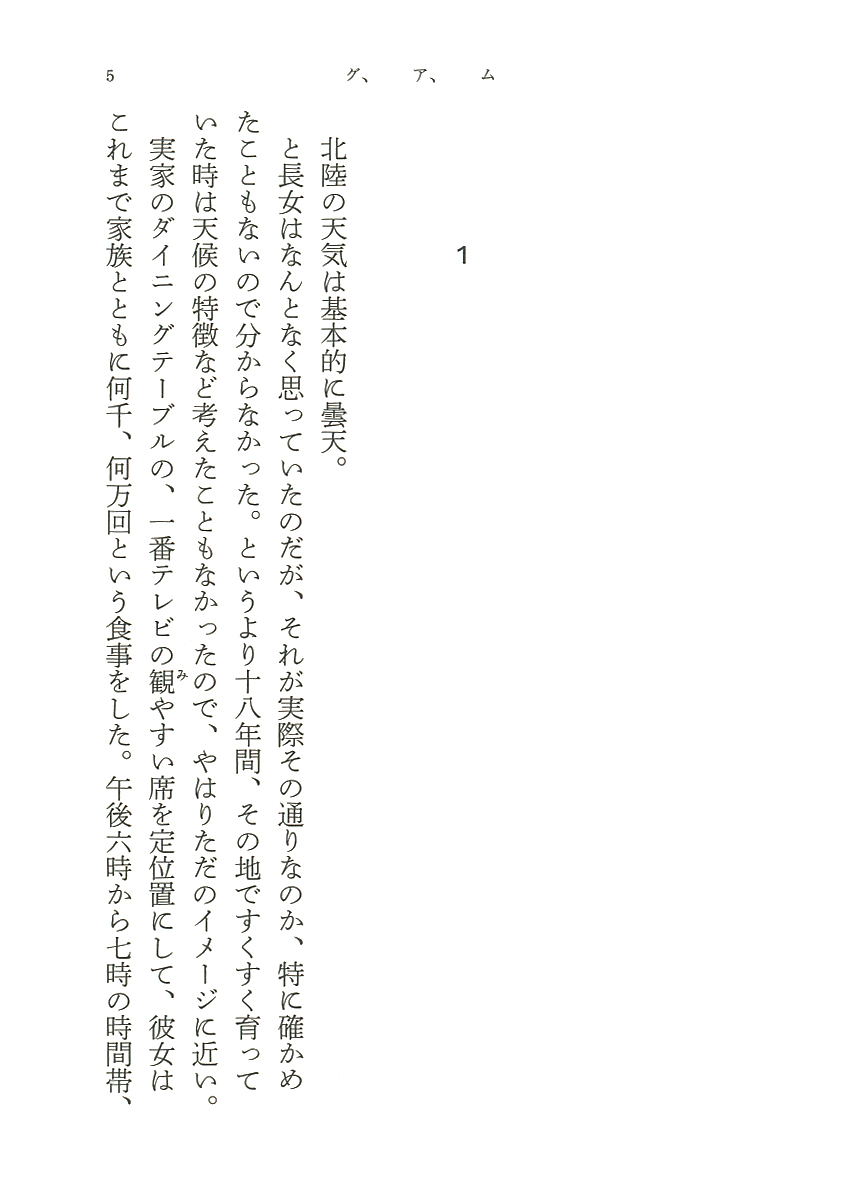 5
グ、ア、ム
1
北陸の天気は基本的に曇天。
と長女はなんとなく思っていたのだが、それが実際その通りなのか、特に確かめ
たこともないので分からなかった。というより十八年間、その地ですくすく育って
いた時は天候の特徴など考えたこともなかったので、やはりただのイメージに近い。
実家のダイニングテーブルの、一番テレビの観やすい席を定位置にして、彼女は
み
これまで家族とともに何千、何万回という食事をした。午後六時から七時の時間帯、